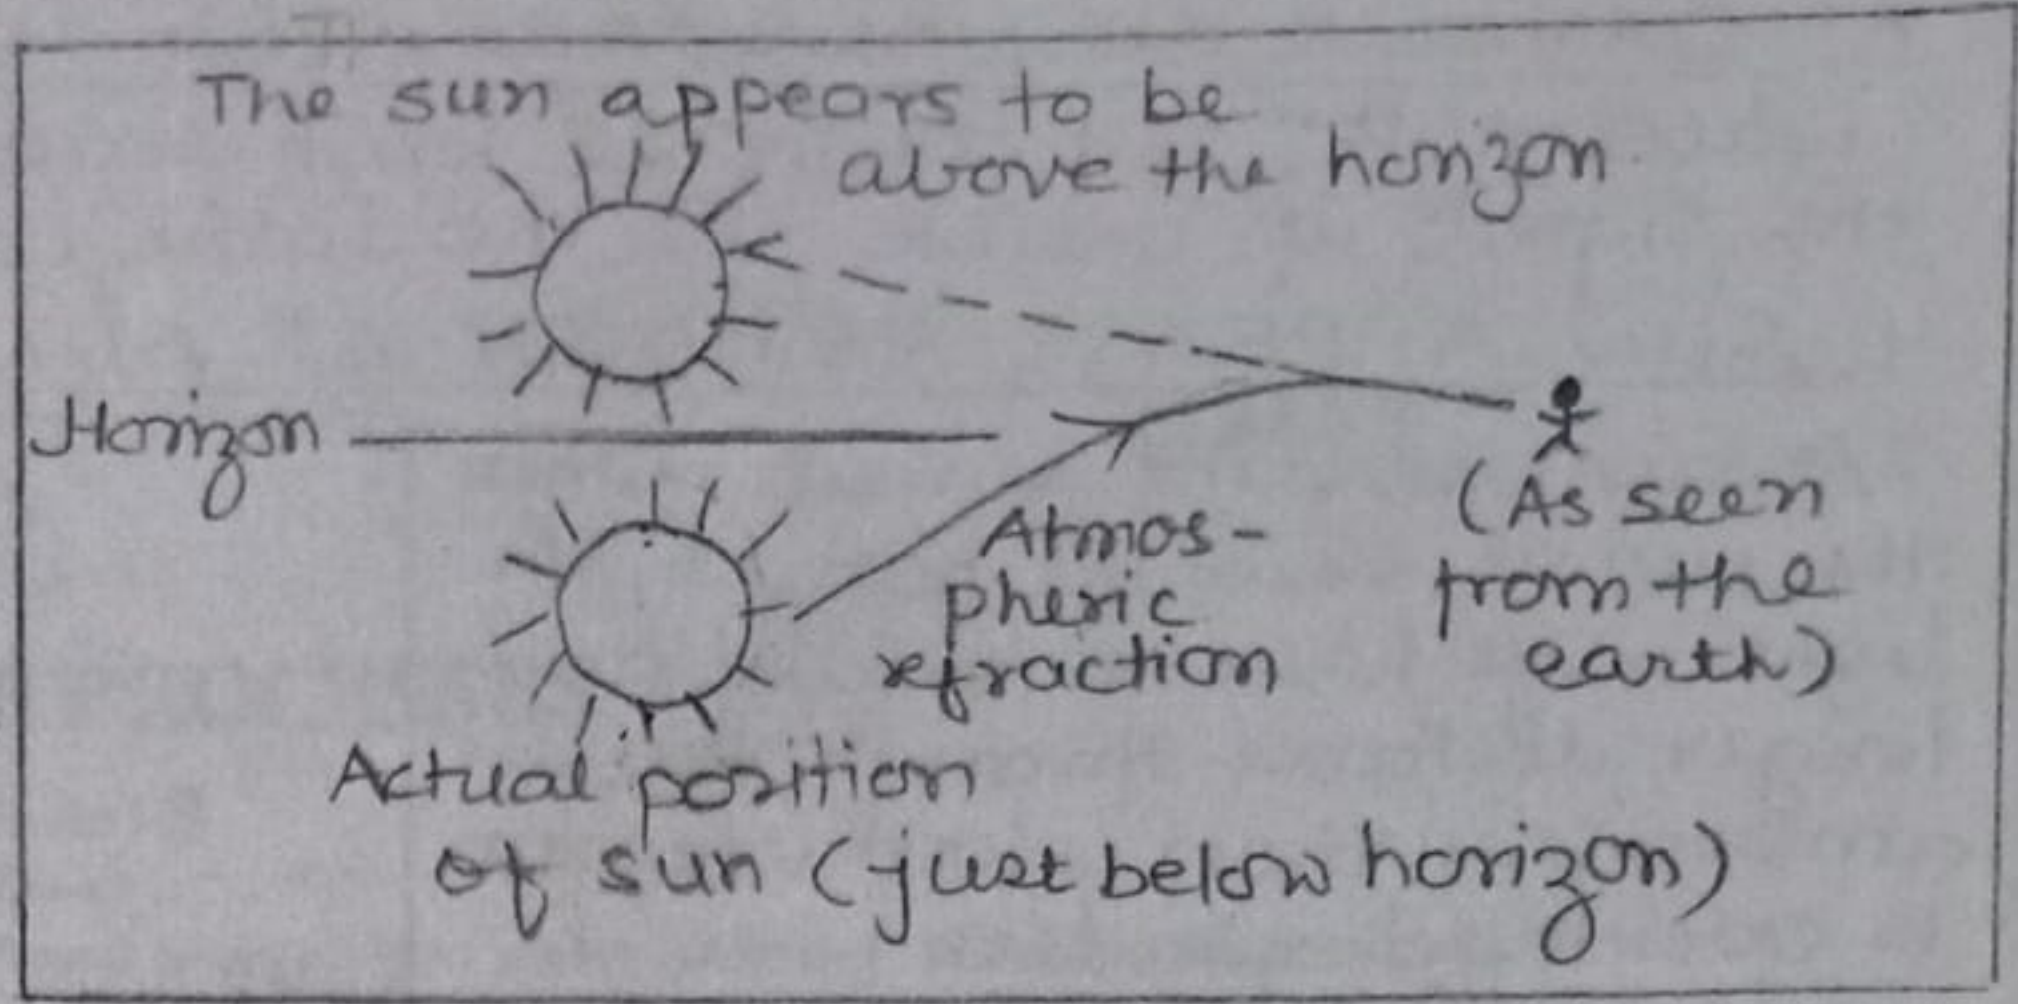 The sun appears to be
above the horizon.
Horizon
Atmos-
pheric
refraction
(As seen
from the
earth)
Actual position
of sun (just below horizon)